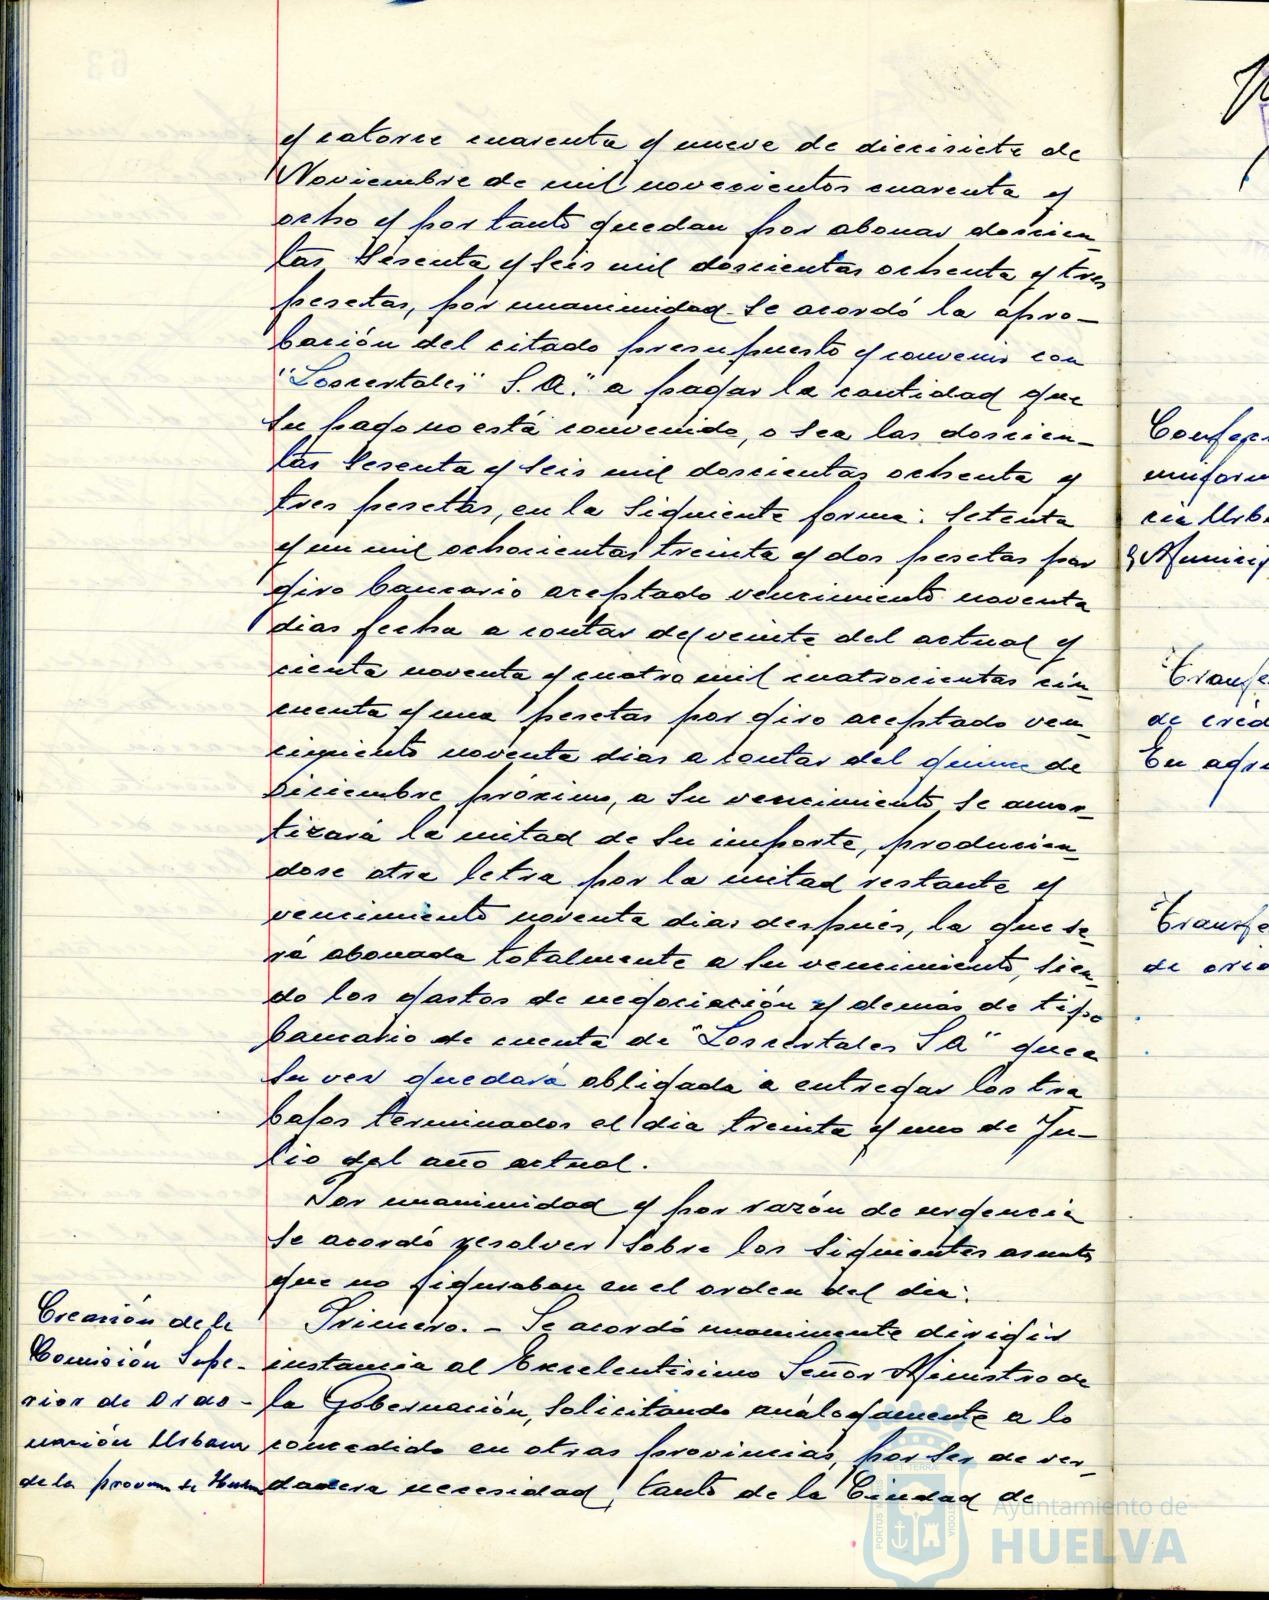 y catorce cuarenta y nueve de diecisiete de
Noviembre de mil novecientos cuarenta y
ocho y por tanto quedan por abonar doscien-
tas sesenta y seis mil doscientas ochenta y tres
pesetas, por unanimidad se acordó la apro-
bación del citado presupuesto y convenir con
"Loscertales" S.A." a pagar la cantidad que
su pago no está convenido, o sea las doscien-
tas sesenta y seis mil doscientas ochenta y
tres pesetas, en la siguiente forma: setenta
y un mil ochocientas treinta y dos pesetas por
giro bancario aceptado vencimiento noventa
dias fecha a contar del veinte del actual y
cienta noventa y cuatro mil cuatrocientas cin-
cuenta y una pesetas por giro aceptado ven-
cimiento noventa dias a contar del quince de
Diciembre próximo, a su vencimiento se amor-
tizará la mitad de su importe, producien-
dose otra letra por la mitad restante y
vencimiento noventa dias después, la que se-
rá abonada totalmente a su vencimiento, sien-
do los gastos de negociación y demás de tipo
bancario de cuenta de "Loscertales S A" que a
su vez quedará obligada a entregar los tra
bajos terminados el dia treinta y uno de Ju-
lio del año actual.
Por unanimidad y por razón de urgencia
se acordó resolver sobre los siguientes asuntos
que no figuraban en el orden del dia:
Creación de la
Comisión Supe-
rior de Ordo-
nación Urbana
de la provin de Huelva
Primero. - Se acordó unanimente dirigir
instancia al Excelentisimo Señor Ministro de
la Gobernación, solicitando análogamente a lo
concedido en otras provincias, por ser de ver-
dadera necesidad, tanto de la Ciudad de
Confec
uniform
cia Urba
y Municip
Transfe
de créd
En agru
Transfe
de
Ayuntamiento de
HUELVA